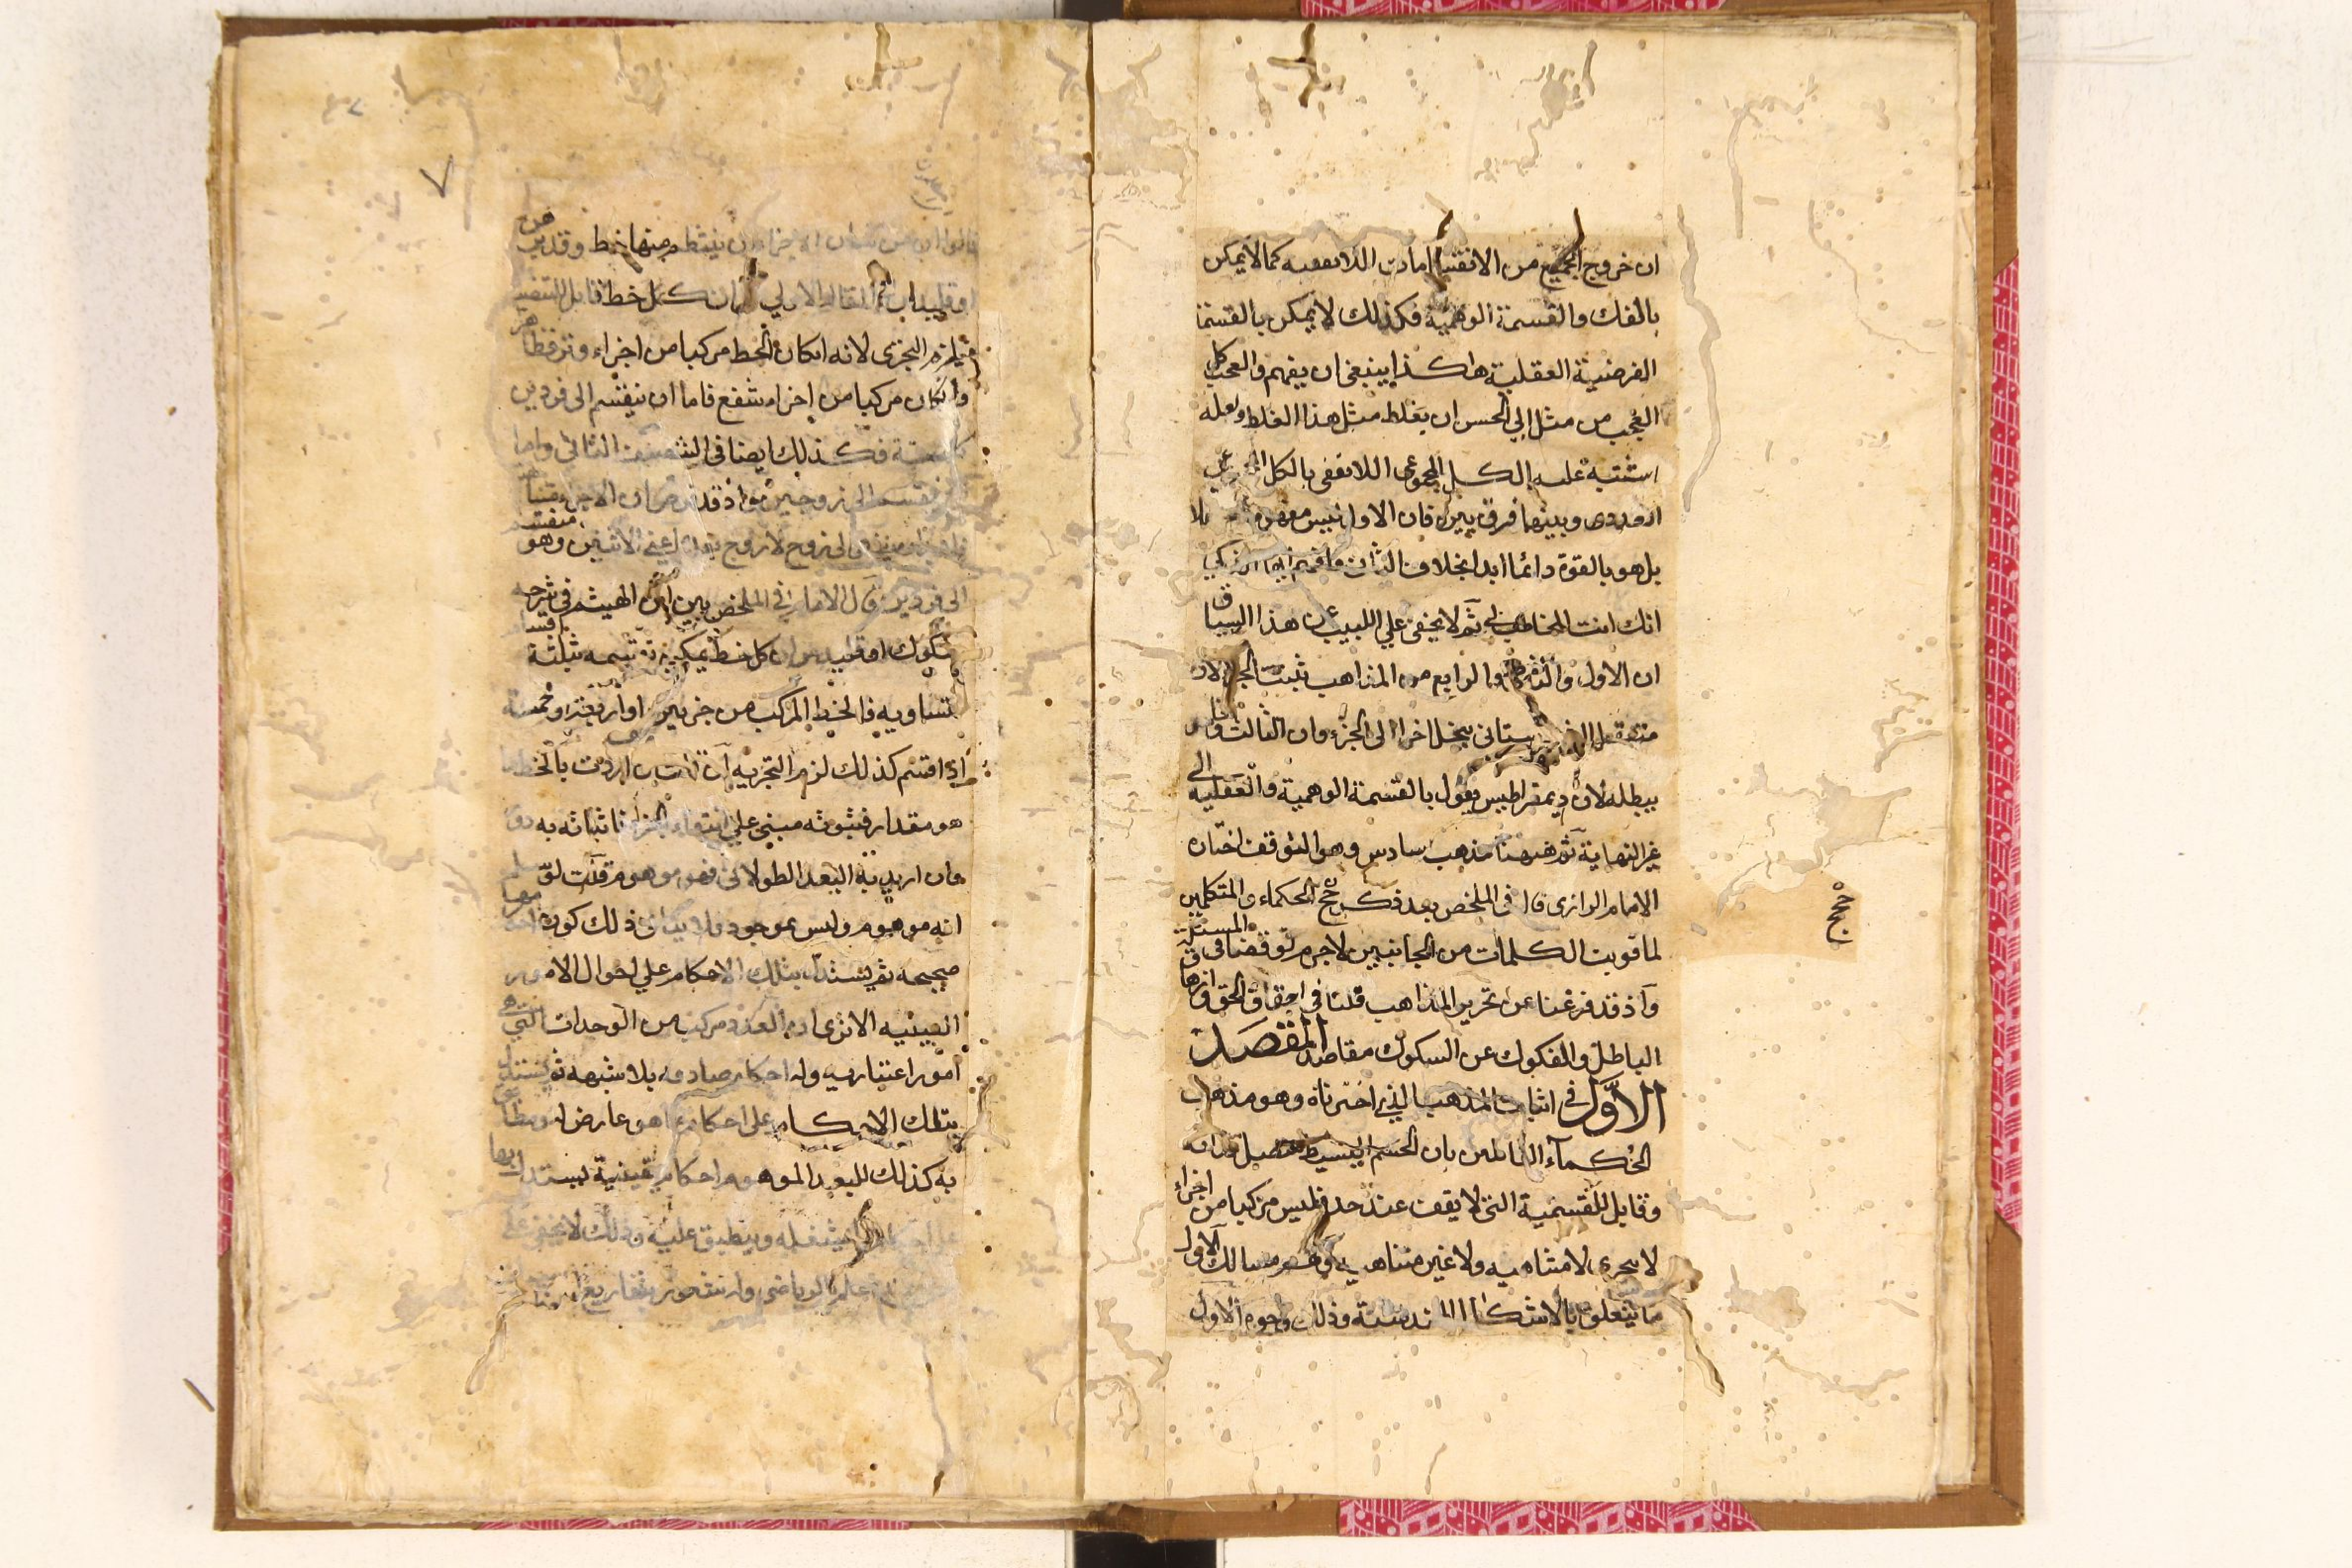 ان خروج الجميع من الانقسامات اللايقفيه كما لا يمكن
بالفك والقسمة الوهمية فكذلك لا يمكن بالقسمة
الفرضية العقلية هاكذا ينبغى ان يفهم والعجب كل
العجب من مثل ابي الحسن ان يغلط مثل هذا الغلط ولعله
اشتبه عليه الكل المجموعى اللايقفى بالكل
وبينهما فرق بين فان الاول ليس
بل هو بالقوة دائما ابدا بخلاف الثانى فافهم ايها الزكي
انك انت المخاطب ثم لا يخفى علي اللبيب ان هذا السياق
ان الاول والثانى والرابع من المذاهب يثبت الجزء لان
الشهرستانى ينحل اخرا الى الجزء وان الثالث
يبطله لان ديمقراطيس يقول بالقسمة الوهمية والعقلية الى
غير النهاية ثم ههنا مذهب سادس وهو التوقف اختاره
الامام الرازى قال فى الملخص بعد ذكر حجج الحكماء والمتكلمين
حجج
لما قويت الكلمات من الجانبين لاجرم توقفنا فى المسئلة
واذ قد فرغنا عن تحرير المذاهب قلنا فى احقاق الحق وازهاق
الباطل والفكوك عن السكوك مقاصد المقصد
الاول فى اثبات المذهب الذي اخترناه وهو مذهب
الحكماء القايلين بان الجسم البسيط متصل
وقابل للقسمية التى لا يقف عند حد فليس مركبا من اجزاء
لا يتجزى لا متناهيه ولا غير متناهيه وفيه مسالك الاول
ما يتعلق بالاشكال الهندسية وذلك وجوه الاول
٧
قالوا ان من شان الاجزاء ان ينتظم منها خط وقد برهن
اوقليدس فى المقالة الاولي ان كل خط قابل للتنصيف
فيلزم التجزى لانه ان كان الخط مركبا من اجزاء وتر فظاهر
وان كان مركبا من اجزاء شفع فاما ان ينقسم الى فردين
كالستة فكذلك ايضا فى التنصيف الثانى واما
ان ينقسم الى زوجين
الى زوج لا زوج بعده اعنى الاثنين وهو منقسم
الى فردين قال الامام في الملخص بين ابن الهيثم فى شرحه
شكوك اوقليدس ان كل خط يمكن قسمه ثلثة اقسام
متساويه فالخط المركب من جزئين او اربعة او خمسة
اذا اقتسم كذلك لزم التجزيه ان اردت بالخط ما
هو مقدار فثبوته مبنى علي انتفاء الجزء فاثباته به دور
وان اريد به البعد الطولانى فهو موهوم قلت لو سلم
انه موهوم وليس بموجود فلا ينافى ذلك كونه
صحيحه ثم يستدل بتلك الاحكام علي احوال الامور
العينيه الا ترى ان العدد مركب من الوحدات التى هى
امور اعتباريه وله احكام صادقه بلا شبهه ثم يستدل
بتلك الاحكام على احكام ما هو عارض له
به كذلك للبعد الموهوم احكام يقينية ليستدل بها
وينطبق عليه وذلك لا يخفى على
علم الرياضى